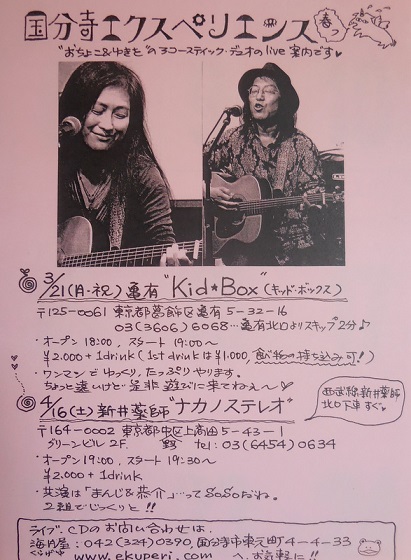 国分寺エクスペリエンス 春っ
"おちょこ&ゆきを"のアコースティック・デュオのlive案内です♥
3/21(月・祝) 亀有 "Kid★Box"(キッド・ボックス)
〒125-0061 東京都葛飾区亀有5-32-16
03(3606)6068…亀有北口よりスキップ2分♪
・オープン18:00, スタート19:00〜
¥2.000+1drink (1st drinkは¥1,000, 食べ物の持ち込み可!)
・ワンマンでゆっくり、たっぷりやります。
ちょっと遠いけど…是非遊びに来てねぇ〜
4/16(土) 新井薬師 "ナカノステレオ"
西武線新井薬師
北口下車すぐ♥
〒164-0002 東京都中野区上高田5-43-1
グリーンビル2F. tel:03(6454)0634
・オープン19:00, スタート19:30〜
¥2.000+1drink
・共演は「まんじ&恭介」…ってSoSoだね。
2組でじっくりと!!
ライブ、CDのお問い合わせは、
海月屋:042(324)0390, 国分寺市東元町4-4-33
www.ekuperi.com へ、お気軽に!!